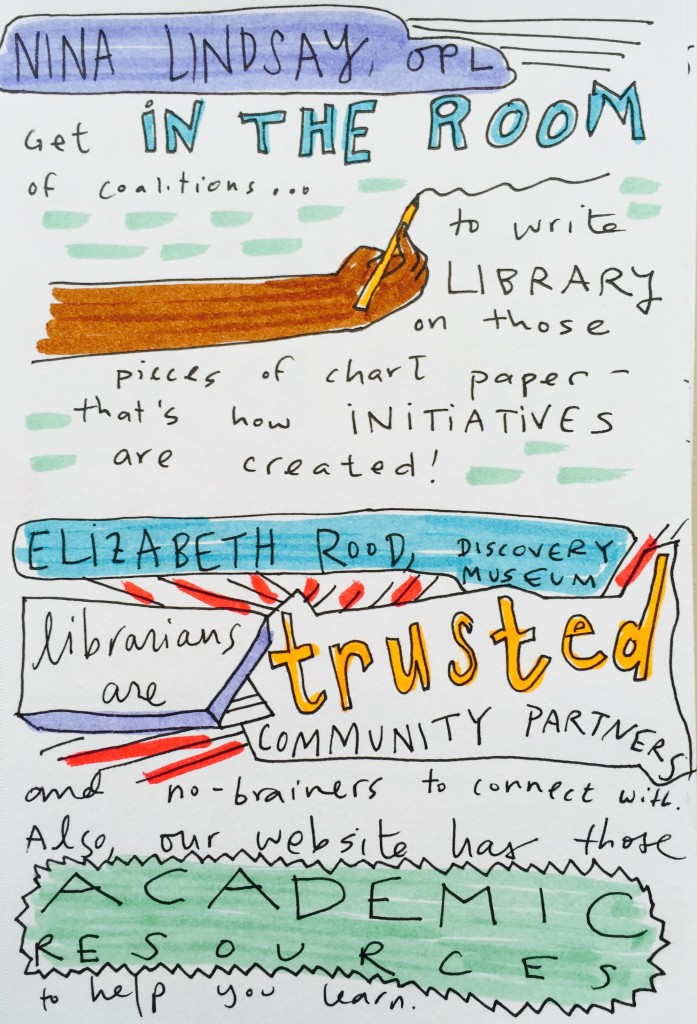 NINA LINDSAY, OPL
Get IN THE ROOM
of coalitions...
to write
LIBRARY
on those
pieces of chart paper-
that's how INITIATIVES
are created!
ELIZABETH ROOD, DISCOVERY
MUSEUM
librarians
are
trusted
COMMUNITY PARTNERS
and no-brainers to connect with.
Also, our website has those
ACADEMIC
RESOURCES
to help you learn.